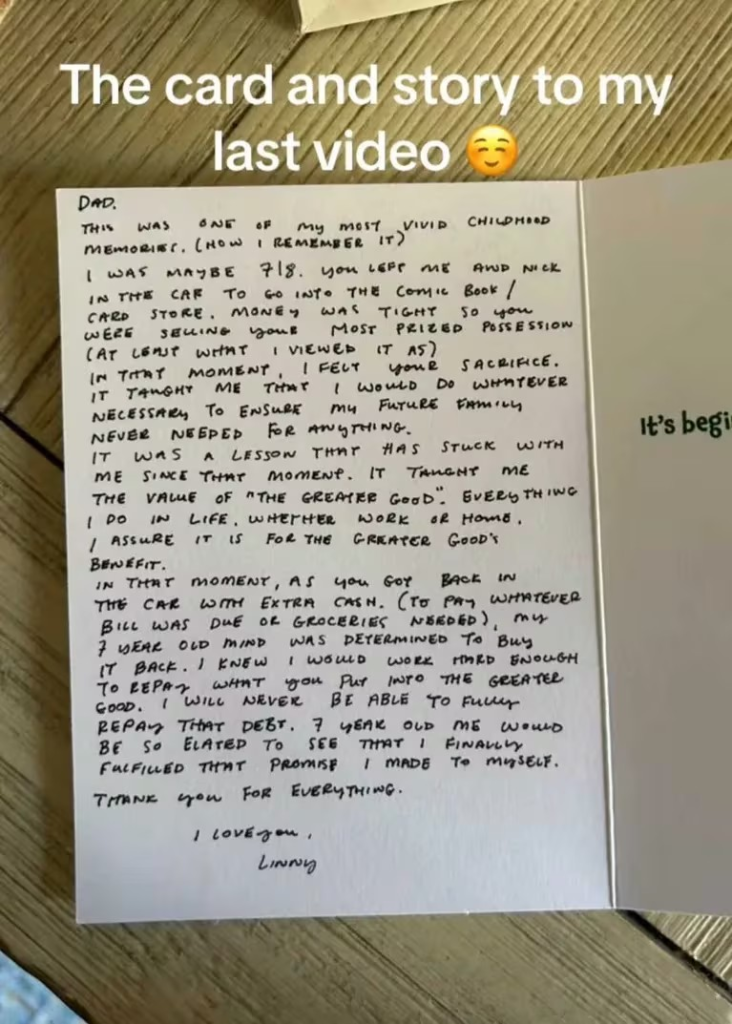 The card and story to my
last video ☺️
DAD.
THIS WAS ONE OF MY MOST VIVID CHILDHOOD
MEMORIES. (HOW I REMEMBER IT)
I WAS MAYBE 7/8. YOU LEFT ME AND NICK
IN THE CAR TO GO INTO THE COMIC BOOK/
CARD STORE. MONEY WAS TIGHT SO YOU
WERE SELLING YOUR MOST PRIZED POSSESSION
(AT LEAST WHAT I VIEWED IT AS)
IN THAT MOMENT, I FELT YOUR SACRIFICE.
IT TAUGHT ME THAT I WOULD DO WHATEVER
NECESSARY TO ENSURE MY FUTURE FAMILY
NEVER NEEDED FOR ANYTHING.
IT WAS A LESSON THAT HAS STUCK WITH
ME SINCE THAT MOMENT. IT TAUGHT ME
THE VALUE OF "THE GREATER GOOD". EVERYTHING
I DO IN LIFE, WHETHER WORK OR HOME,
I ASSURE IT IS FOR THE GREATER GOOD'S
BENEFIT.
IN THAT MOMENT, AS YOU GOT BACK IN
THE CAR WITH EXTRA CASH. (TO PAY WHATEVER
BILL WAS DUE OR GROCERIES NEEDED), MY
7 YEAR OLD MIND WAS DETERMINED TO BUY
IT BACK. I KNEW I WOULD WORK HARD ENOUGH
TO REPAY WHAT YOU PUT INTO THE GREATER
GOOD. I WILL NEVER BE ABLE TO FULLY
REPAY THAT DEBT. 7 YEAR OLD ME WOULD
BE SO ELATED TO SEE THAT I FINALLY
FULFILLED THAT PROMISE I MADE TO MYSELF.
THANK YOU FOR EVERYTHING.
I LOVE YOU,
LINNY
It's